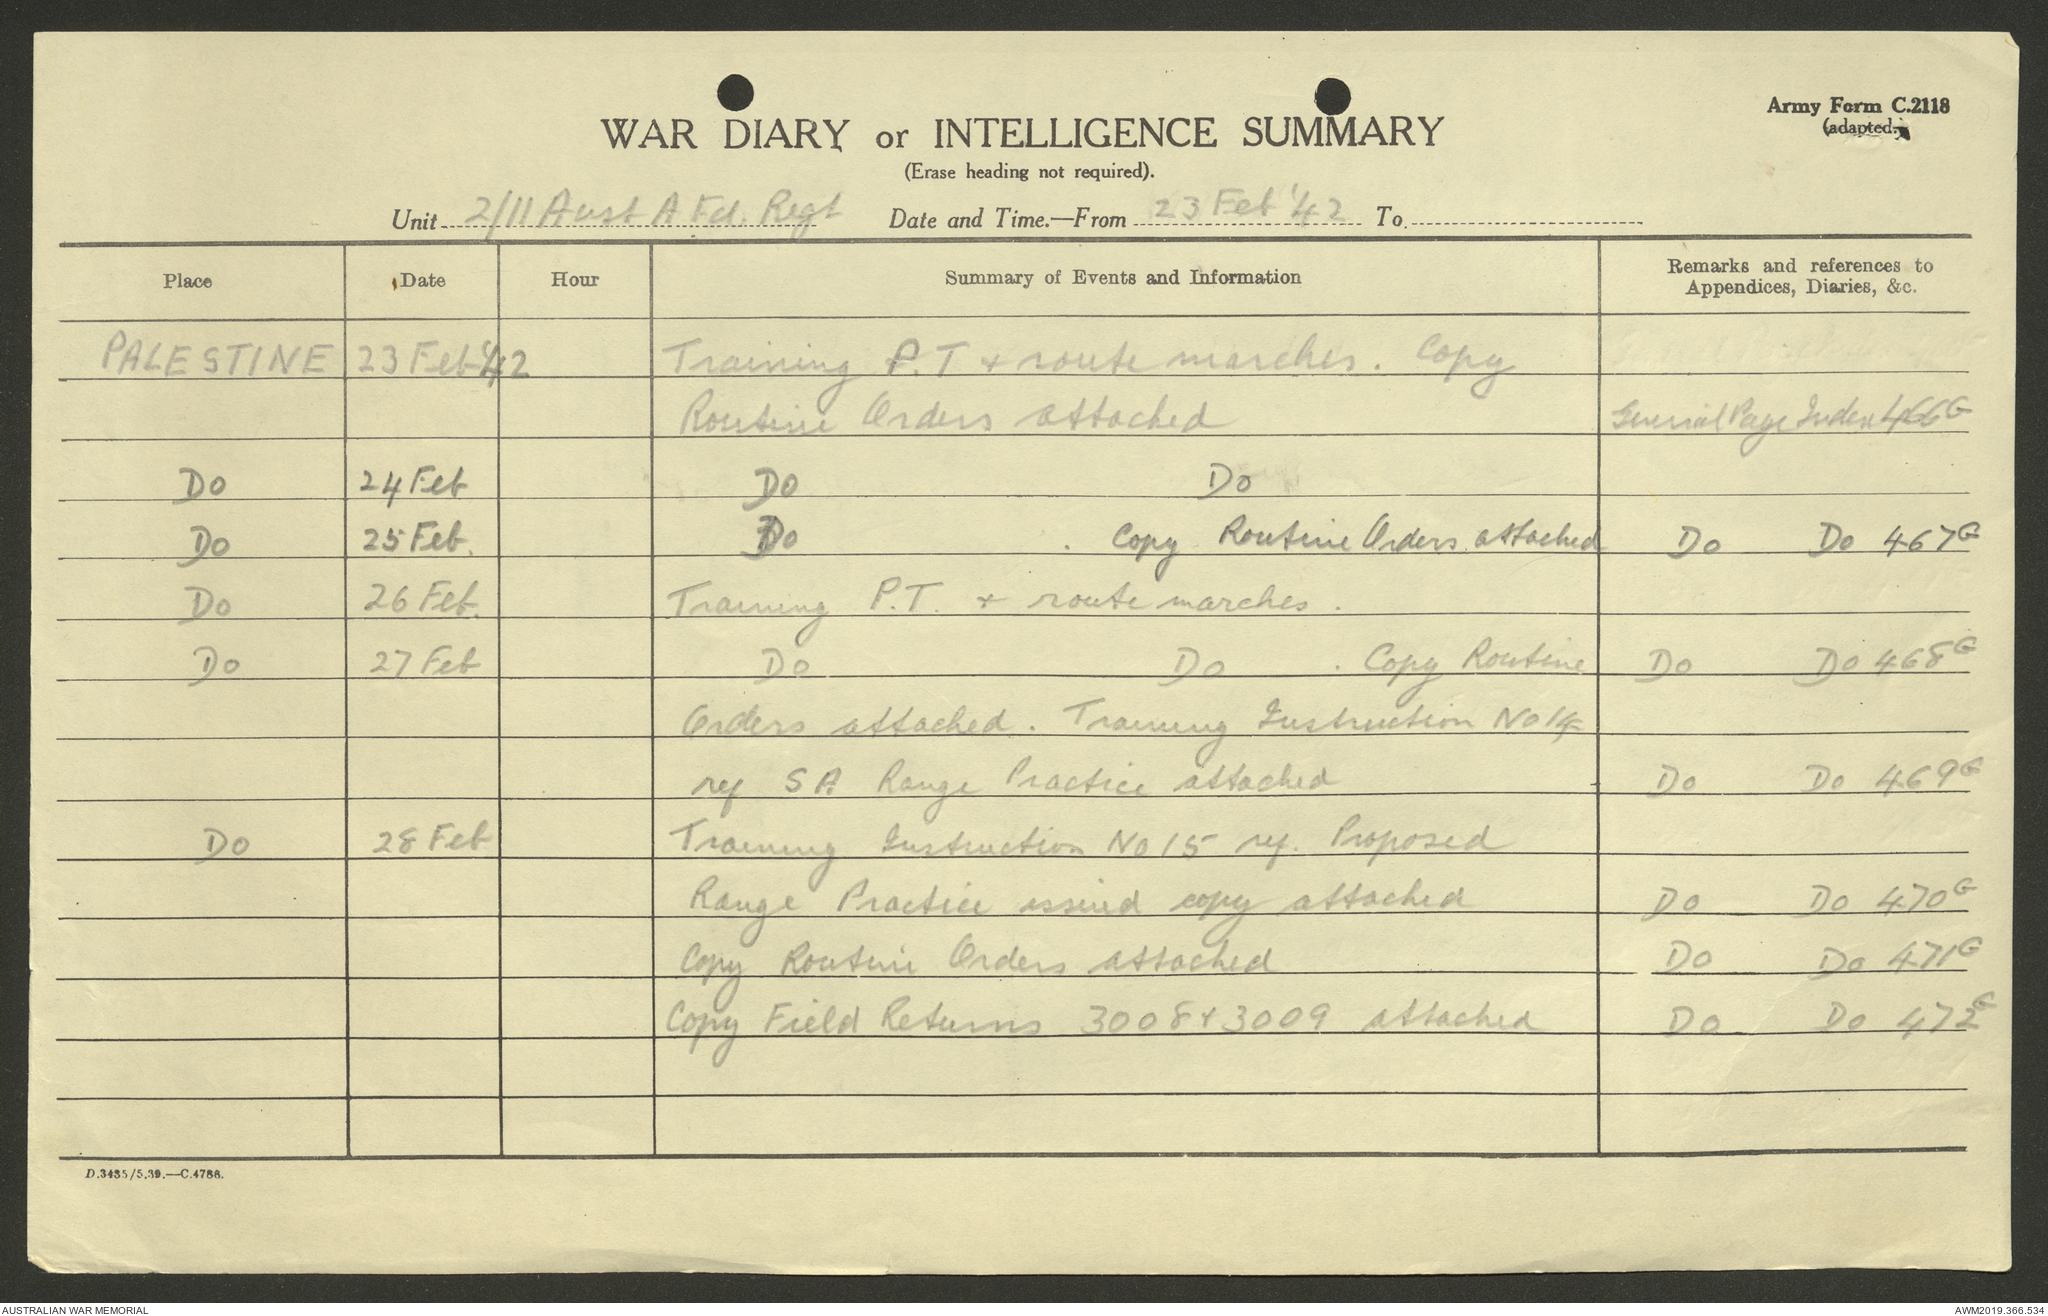 Army Form C.2118
(adapted.)
WAR DIARY or INTELLIGENCE SUMMARY
(Erase heading not required).
Unit 2/11 Aust A Fd. Regt Date and Time.—From 23 Feb '42 To
Place Date Hour Summary of Events and Information Remarks and references to
Appendices, Diaries, &c.
PALESTINE 23 Feb '42 Training P.T + route marches. Copy
Routine Orders attached General Page Index 466G
Do 24 Feb Do Do
Do 25 Feb. Do . Copy Routine Orders attached Do Do 467G
Do 26 Feb. Training P.T. + route marches.
Do 27 Feb Do Do . Copy Routine Do Do 468G
Orders attached. Training Instruction No 14
ref SA Range Practice attached Do Do 469G
Do 28 Feb Training Instruction No 15 ref. Proposed
Range Practice issued copy attached Do Do 470G
Copy Routine Orders attached Do Do 471G
Copy Field Returns 3008 + 3009 attached Do Do 472G
D.3435/5.39.—C.4786.
AUSTRALIAN WAR MEMORIAL AWM2019.366.534